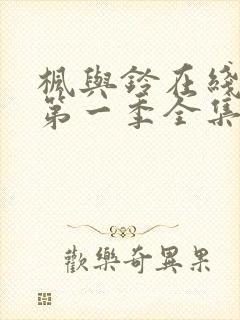 楓與鈴在綫
第一季全集
歡樂奇異果